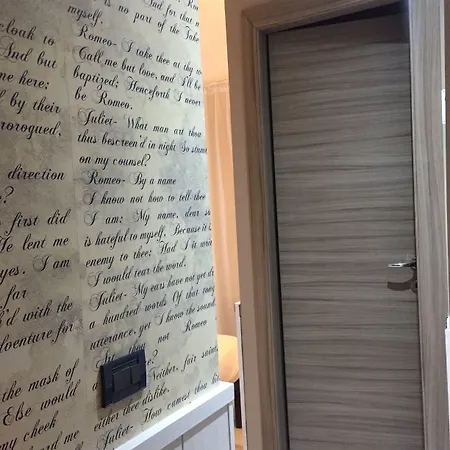 cloak to
And but
me here;
l by their
prorogued,
direction
?
first did
He lent me
yes. I am
far
h'd with the
adventure for
the mask of
Else would
my cheek
heard me
is no part of
And for that
myself.
Romeo- I take thee at thy
Call me but love, and I'll be
baptized; Henceforth I never
be Romeo.
Juliet- What man art thou
thus bescreen'd in night So stum
on my counsel?
Romeo- By a name
I know not how to tell thee
I am: My name, dear sa
is hateful to myself, Because it i
enemy to thee; Had I it writ
I would tear the word.
Juliet- My ears have not yet
a hundred words Of that
utterance, yet I know the sound:
Art thou not Romeo
Neither, fair saint,
either thee dislike.
Juliet- How camest thou